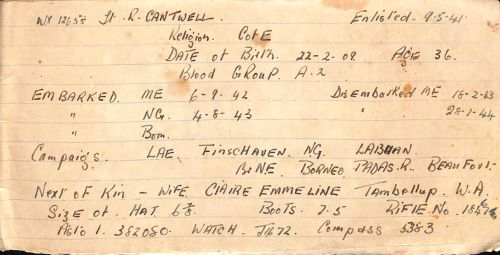 WX 12658 Lt. R. CANTWELL. Enlisted. 9-5-41.
Religion. CofE
DATE of Birth. 22-2-09. AGE 36.
Blood GROUP. A.2
EMBARKED. ME 6-9-42 Disembarked ME 18-2-43
" NG. 4-8-43 " 28-1-44
" Born.
Campaigs. LAE, FINSCHAVEN. NG. LABUAN.
BNE. BORNEO. PADAS.R. BEAUFORT-
Next of Kin - WIFE CLAIRE EMMELINE Tambellup. W.A.
Size of. HAT. 6⅞ Boots. 7.5 RIFLE No.
1. 382080. WATCH. J472. Compass 5383.